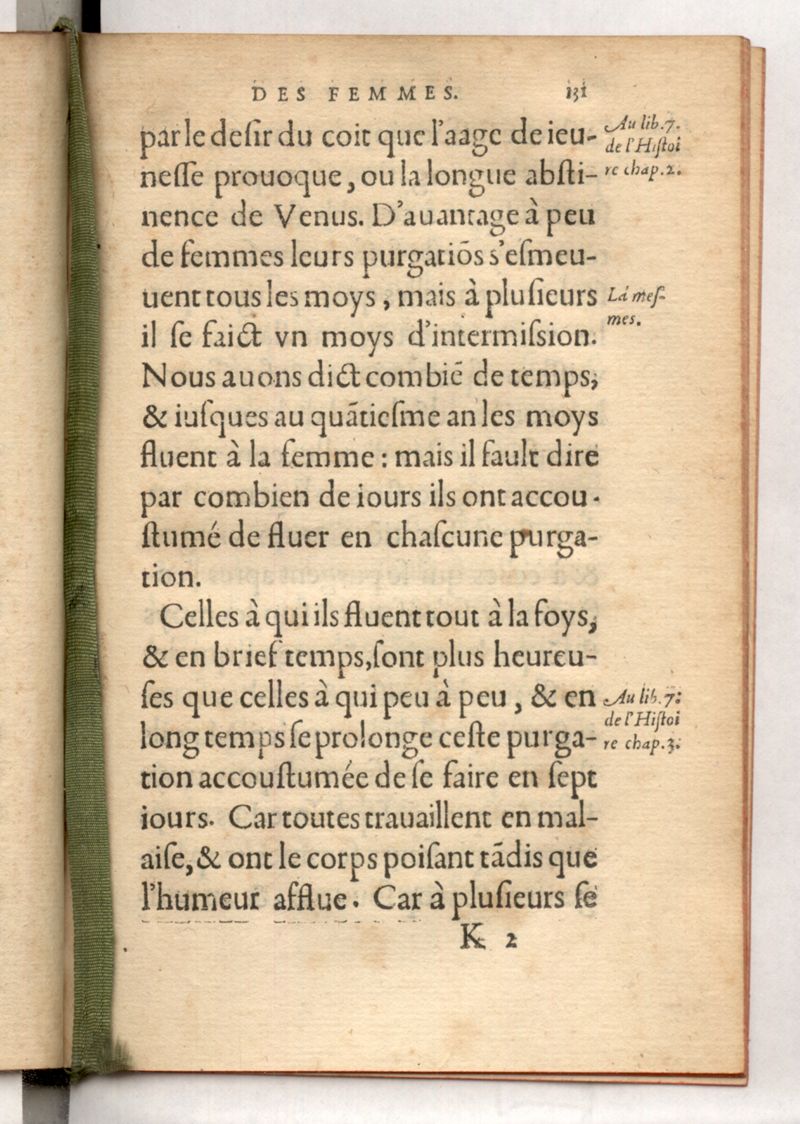 DES FEMMES. 131
par le deſir du coit que l'aage de ieu-
neſſe prouoque, ou la longue abſti-
nence de Venus. D'auantage à peu
de femmes leurs purgatiõs s'eſmeu-
uent tous les moys, mais à pluſieurs
il ſe faict vn moys d'intermiſsion.
Nous auons dict combiẽ de temps,
& iuſques au quãtieſme an les moys
fluent à la femme : mais il fault dire
par combien de iours ils ont accou-
ſtumé de fluer en chaſcune purga-
tion.
Celles à qui ils fluent tout à la foys,
& en brief temps, ſont plus heureu-
ſes que celles à qui peu à peu, & en
long temps ſe prolonge ceſte purga-
tion accouſtumée de ſe faire en ſept
iours. Car toutes trauaillent en mal-
aiſe, & ont le corps poiſant tãdis que
l'humeur afflue. Car à pluſieurs ſe
K 2
Au lib. 7.
de l'Hiſtoi
re chap. 2.
Là meſ-
mes.
Au lib. 7.
de l'Hiſtoi
re chap. 3.